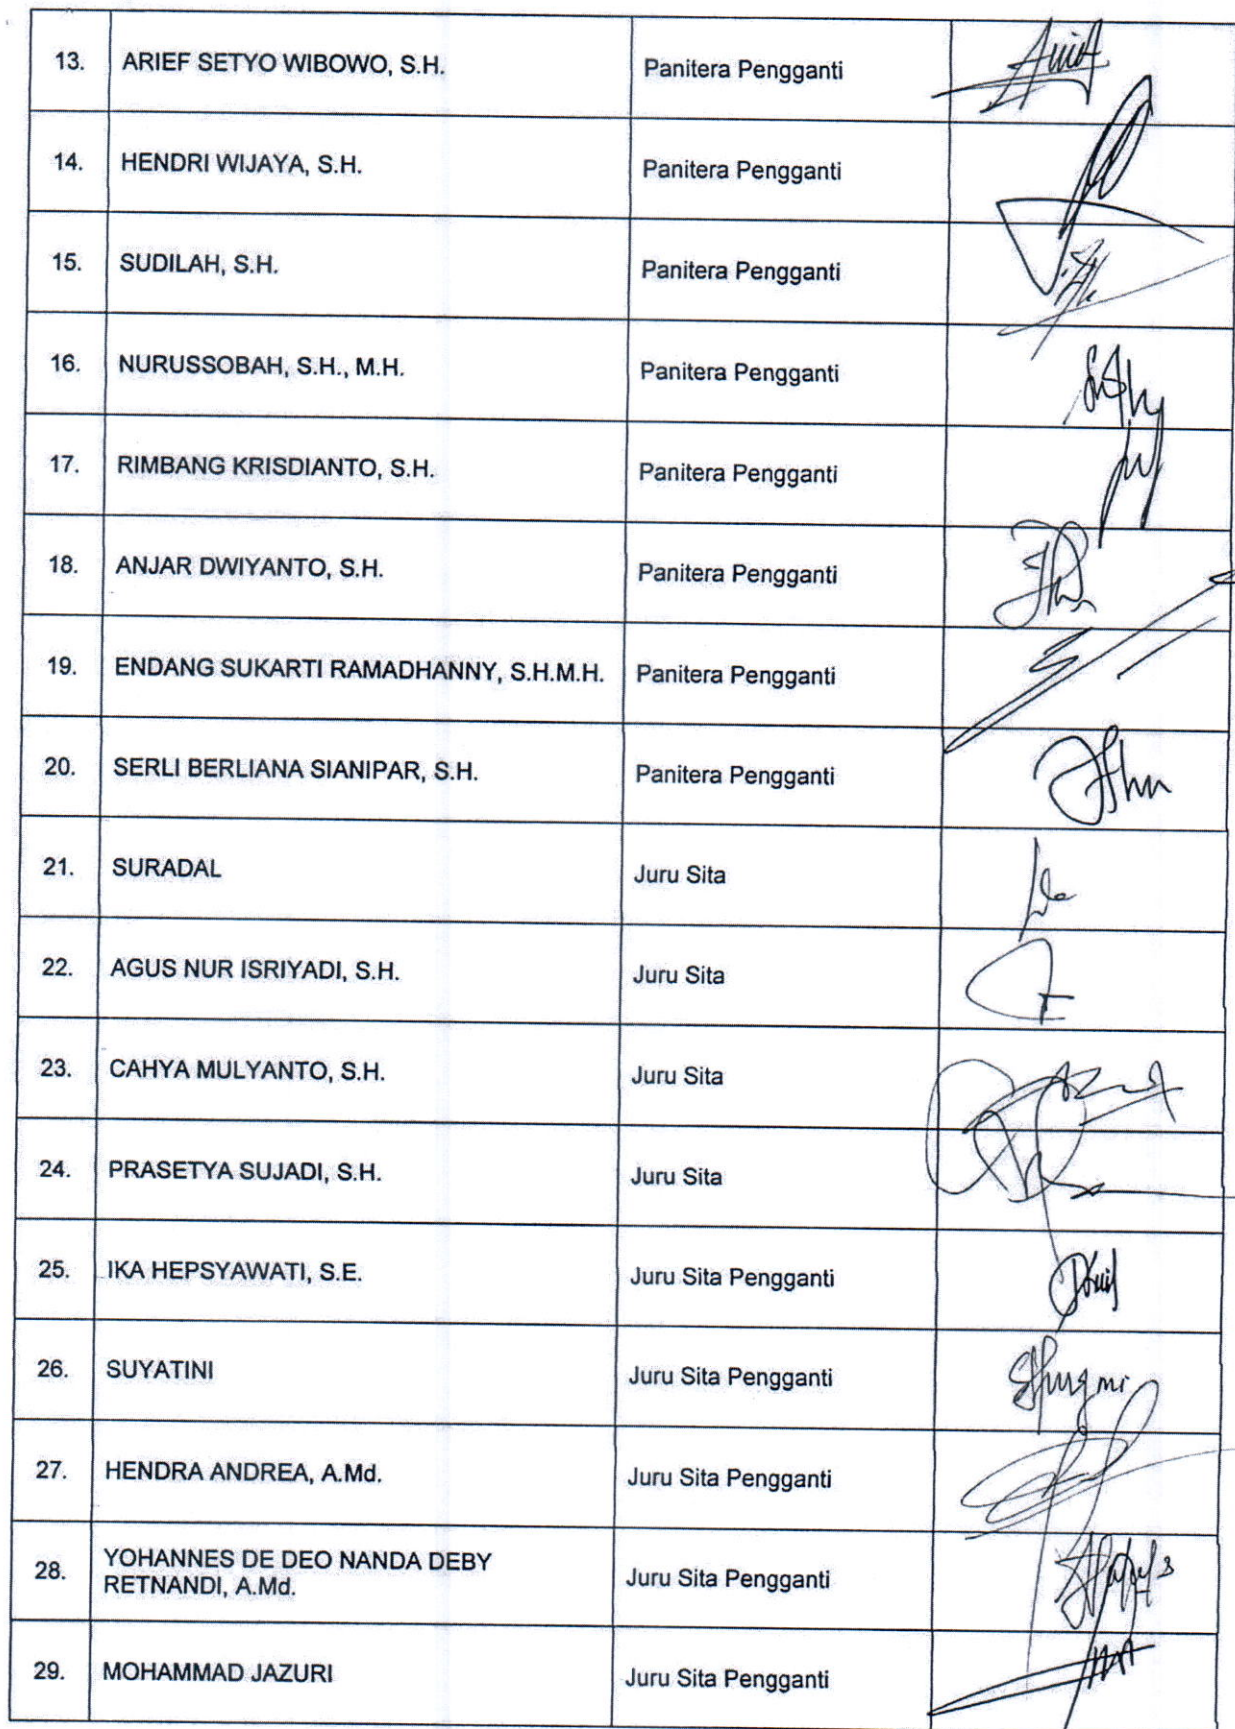 13. ARIEF SETYO WIBOWO, S.H. Panitera Pengganti
14. HENDRI WIJAYA, S.H. Panitera Pengganti
15. SUDILAH, S.H. Panitera Pengganti
16. NURUSSOBAH, S.H., M.H. Panitera Pengganti
17. RIMBANG KRISDIANTO, S.H. Panitera Pengganti
18. ANJAR DWIYANTO, S.H. Panitera Pengganti
19. ENDANG SUKARTI RAMADHANNY, S.H.M.H. Panitera Pengganti
20. SERLI BERLIANA SIANIPAR, S.H. Panitera Pengganti
21. SURADAL Juru Sita
22. AGUS NUR ISRIYADI, S.H. Juru Sita
23. CAHYA MULYANTO, S.H. Juru Sita
24. PRASETYA SUJADI, S.H. Juru Sita
25. IKA HEPSYAWATI, S.E. Juru Sita Pengganti
26. SUYATINI Juru Sita Pengganti
27. HENDRA ANDREA, A.Md. Juru Sita Pengganti
28. YOHANNES DE DEO NANDA DEBY
RETNANDI, A.Md. Juru Sita Pengganti
29. MOHAMMAD JAZURI Juru Sita Pengganti